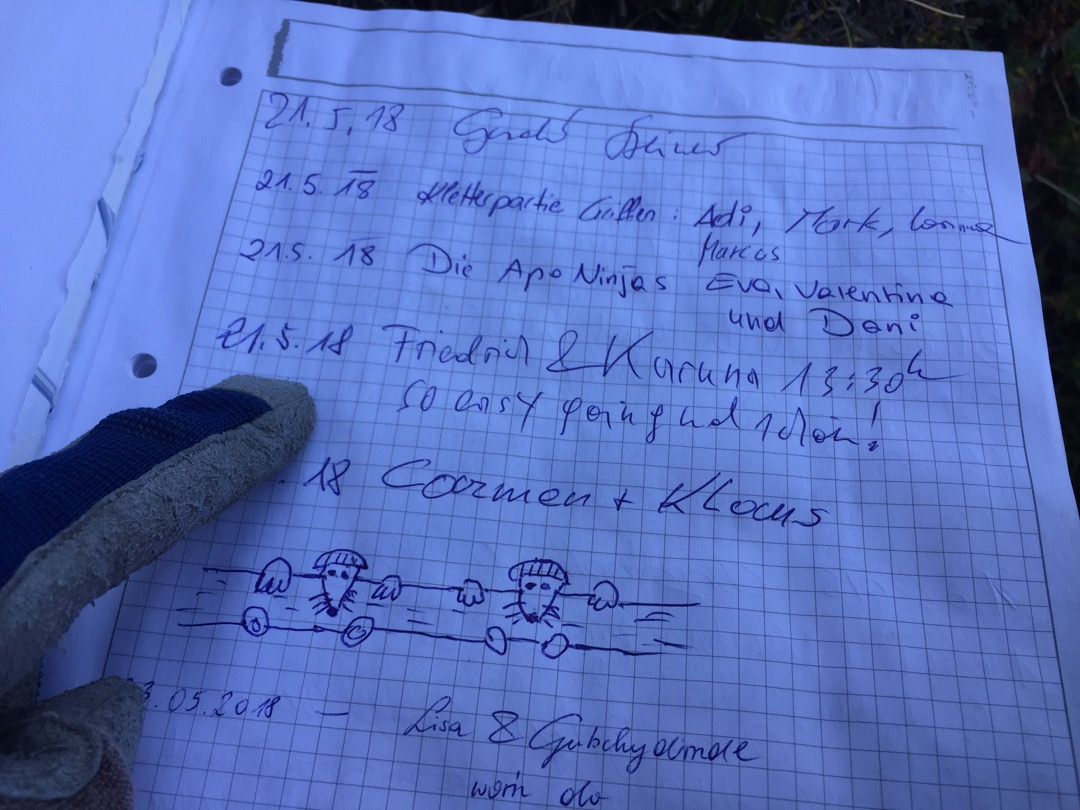 21.5.18
21.5.18 Kletterpartie Griffen: Adi, Mark,
Marcus
21.5.18 Die Apo Ninjas Eva, Valentina
und Dani
21.5.18 Friedrich & Karuna 13:30h
so easy going und schön!
.18 Carmen + Klaus
3.05.2018 — Lisa &
worn do